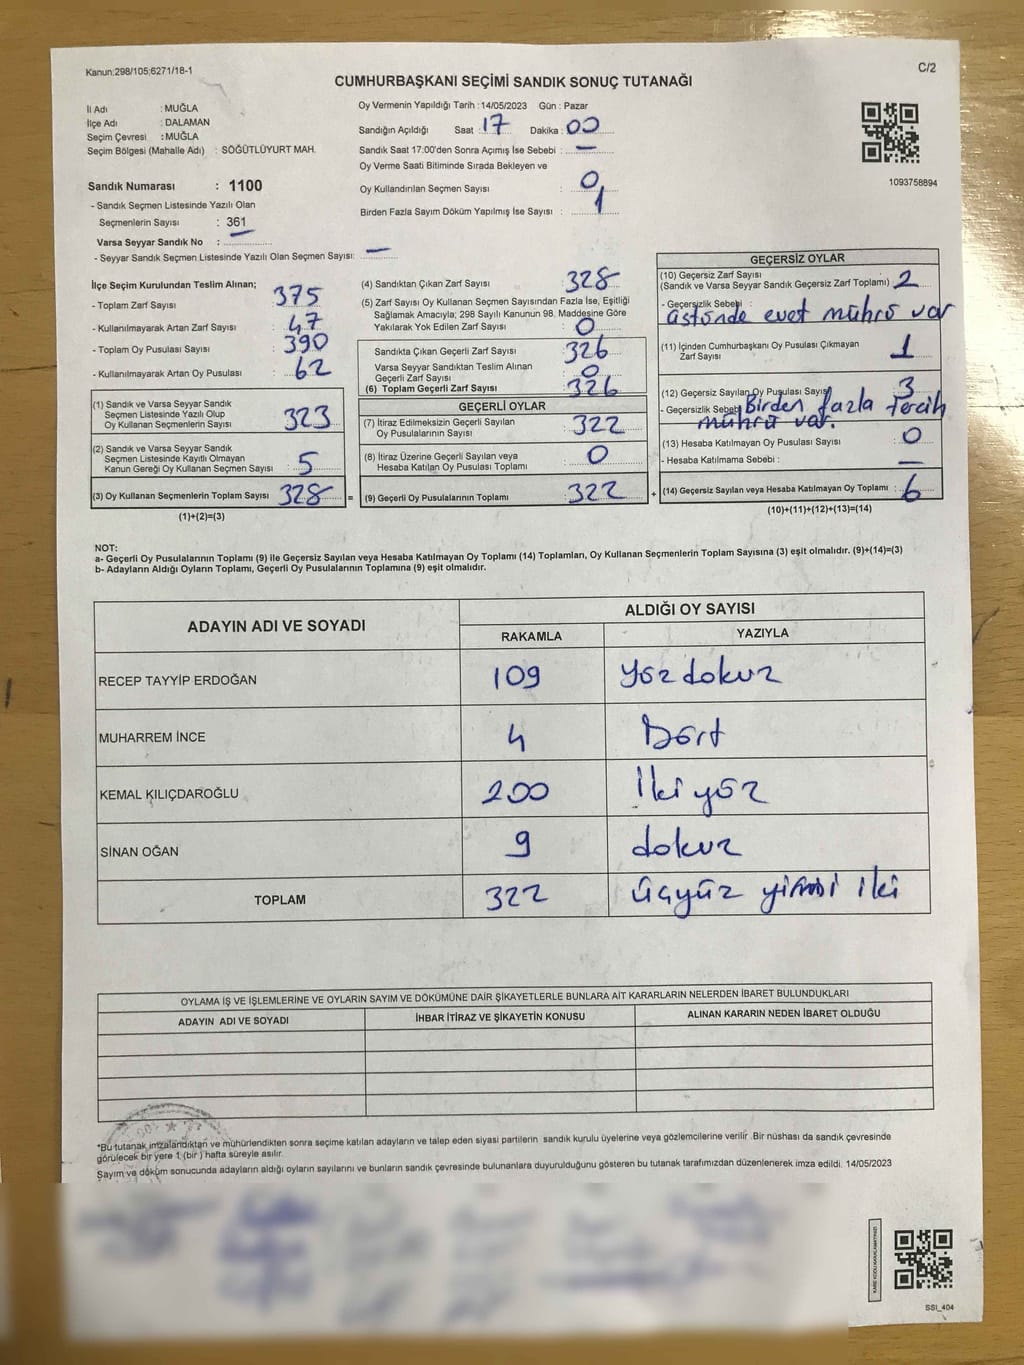 Kanun:298/105;6271/18-1
C/2
CUMHURBAŞKANI SEÇİMİ SANDIK SONUÇ TUTANAĞI
İl Adı : MUĞLA
İlçe Adı : DALAMAN
Seçim Çevresi : MUĞLA
Seçim Bölgesi (Mahalle Adı) : SÖĞÜTLÜYURT MAH.
Sandık Numarası : 1100
- Sandık Seçmen Listesinde Yazılı Olan
Seçmenlerin Sayısı : 361
Varsa Seyyar Sandık No : —
- Seyyar Sandık Seçmen Listesinde Yazılı Olan Seçmen Sayısı: —
Oy Vermenin Yapıldığı Tarih : 14/05/2023 Gün : Pazar
Sandığın Açıldığı Saat : 17 Dakika : 00
Sandık Saat 17:00'den Sonra Açımış İse Sebebi : —
Oy Verme Saati Bitiminde Sırada Bekleyen ve
Oy Kullandırılan Seçmen Sayısı : 0
Birden Fazla Sayım Döküm Yapılmış İse Sayısı : 1
1093758894
İlçe Seçim Kurulundan Teslim Alınan;
- Toplam Zarf Sayısı : 375
- Kullanılmayarak Artan Zarf Sayısı : 47
- Toplam Oy Pusulası Sayısı : 390
- Kullanılmayarak Artan Oy Pusulası : 62
(1) Sandık ve Varsa Seyyar Sandık
Seçmen Listesinde Yazılı Olup
Oy Kullanan Seçmenlerin Sayısı : 323
(2) Sandık ve Varsa Seyyar Sandık
Seçmen Listesinde Kayıtlı Olmayan
Kanun Gereği Oy Kullanan Seçmen Sayısı : 5
(3) Oy Kullanan Seçmenlerin Toplam Sayısı : 328 =
(1)+(2)=(3)
(4) Sandıktan Çıkan Zarf Sayısı : 328
(5) Zarf Sayısı Oy Kullanan Seçmen Sayısından Fazla İse, Eşitliği
Sağlamak Amacıyla; 298 Sayılı Kanunun 98. Maddesine Göre
Yakılarak Yok Edilen Zarf Sayısı : 0
Sandıkta Çıkan Geçerli Zarf Sayısı : 326
Varsa Seyyar Sandıktan Teslim Alınan
Geçerli Zarf Sayısı : 0
(6) Toplam Geçerli Zarf Sayısı : 326
GEÇERLİ OYLAR
(7) İtiraz Edilmeksizin Geçerli Sayılan
Oy Pusulalarının Sayısı : 322
(8) İtiraz Üzerine Geçerli Sayılan veya
Hesaba Katılan Oy Pusulası Toplamı : 0
(9) Geçerli Oy Pusulalarının Toplamı : 322 +
GEÇERSİZ OYLAR
(10) Geçersiz Zarf Sayısı
(Sandık ve Varsa Seyyar Sandık Geçersiz Zarf Toplamı) : 2
- Geçersizlik Sebebi :
üstünde evet mührü var
(11) İçinden Cumhurbaşkanı Oy Pusulası Çıkmayan
Zarf Sayısı : 1
(12) Geçersiz Sayılan Oy Pusulası Sayısı : 3
- Geçersizlik Sebebi Birden fazla tercih
mührü var.
(13) Hesaba Katılmayan Oy Pusulası Sayısı : 0
- Hesaba Katılmama Sebebi : —
(14) Geçersiz Sayılan veya Hesaba Katılmayan Oy Toplamı : 6
(10)+(11)+(12)+(13)=(14)
NOT:
a- Geçerli Oy Pusulalarının Toplamı (9) ile Geçersiz Sayılan veya Hesaba Katılmayan Oy Toplamı (14) Toplamları, Oy Kullanan Seçmenlerin Toplam Sayısına (3) eşit olmalıdır. (9)+(14)=(3)
b- Adayların Aldığı Oyların Toplamı, Geçerli Oy Pusulalarının Toplamına (9) eşit olmalıdır.
ADAYIN ADI VE SOYADI
ALDIĞI OY SAYISI
RAKAMLA YAZIYLA
RECEP TAYYİP ERDOĞAN 109 yüzdokuz
MUHARREM İNCE 4 Dört
KEMAL KILIÇDAROĞLU 200 İkiyüz
SİNAN OĞAN 9 dokuz
TOPLAM 322 üçyüz yirmi iki
OYLAMA İŞ VE İŞLEMLERİNE VE OYLARIN SAYIM VE DÖKÜMÜNE DAİR ŞİKAYETLERLE BUNLARA AİT KARARLARIN NELERDEN İBARET BULUNDUKLARI
ADAYIN ADI VE SOYADI İHBAR İTİRAZ VE ŞİKAYETİN KONUSU ALINAN KARARIN NEDEN İBARET OLDUĞU
*Bu tutanak imzalandıktan ve mühürlendikten sonra seçime katılan adayların ve talep eden siyasi partilerin sandık kurulu üyelerine veya gözlemcilerine verilir. Bir nüshası da sandık çevresinde
görülecek bir yere 1 (bir) hafta süreyle asılır.
Sayım ve döküm sonucunda adayların aldığı oyların sayılarını ve bunların sandık çevresinde bulunanlara duyurulduğunu gösteren bu tutanak tarafımızdan düzenlenerek imza edildi. 14/05/2023
SSI_404